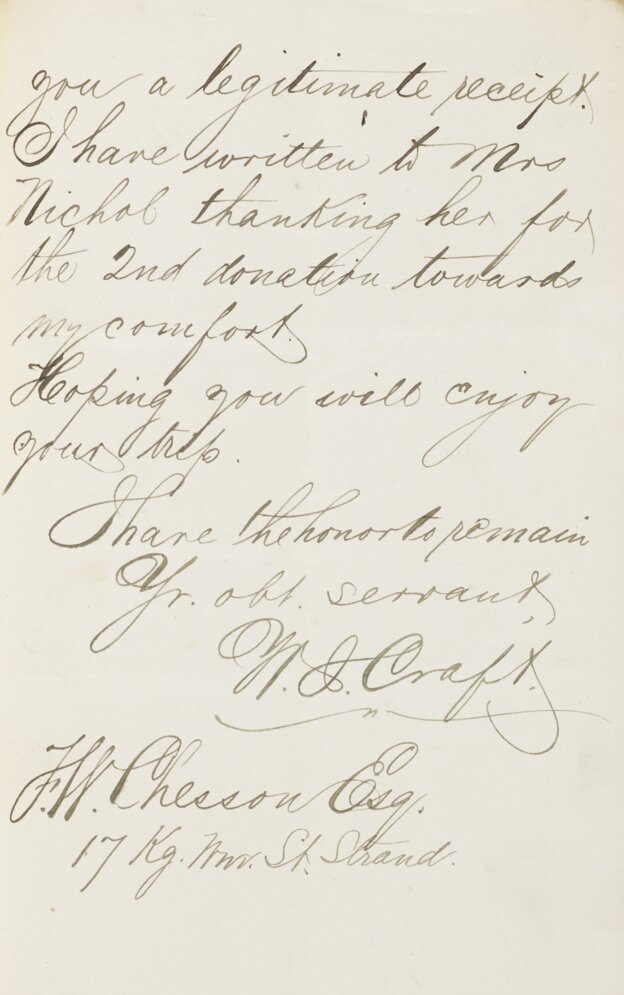 you a legitimate receipt.
I have written to Mrs
Nichol thanking her for
the 2nd donation towards
my comfort.
Hoping you will enjoy
your trip.
I have the honor to remain
Yr. obt. servant,
W. S. Craft.
F.W. Chesson Esq.
17 Kg. Wm. St. Strand.